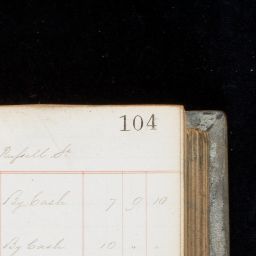 104
Russell St
By Cash 7 9 10
By Cash 10 " "